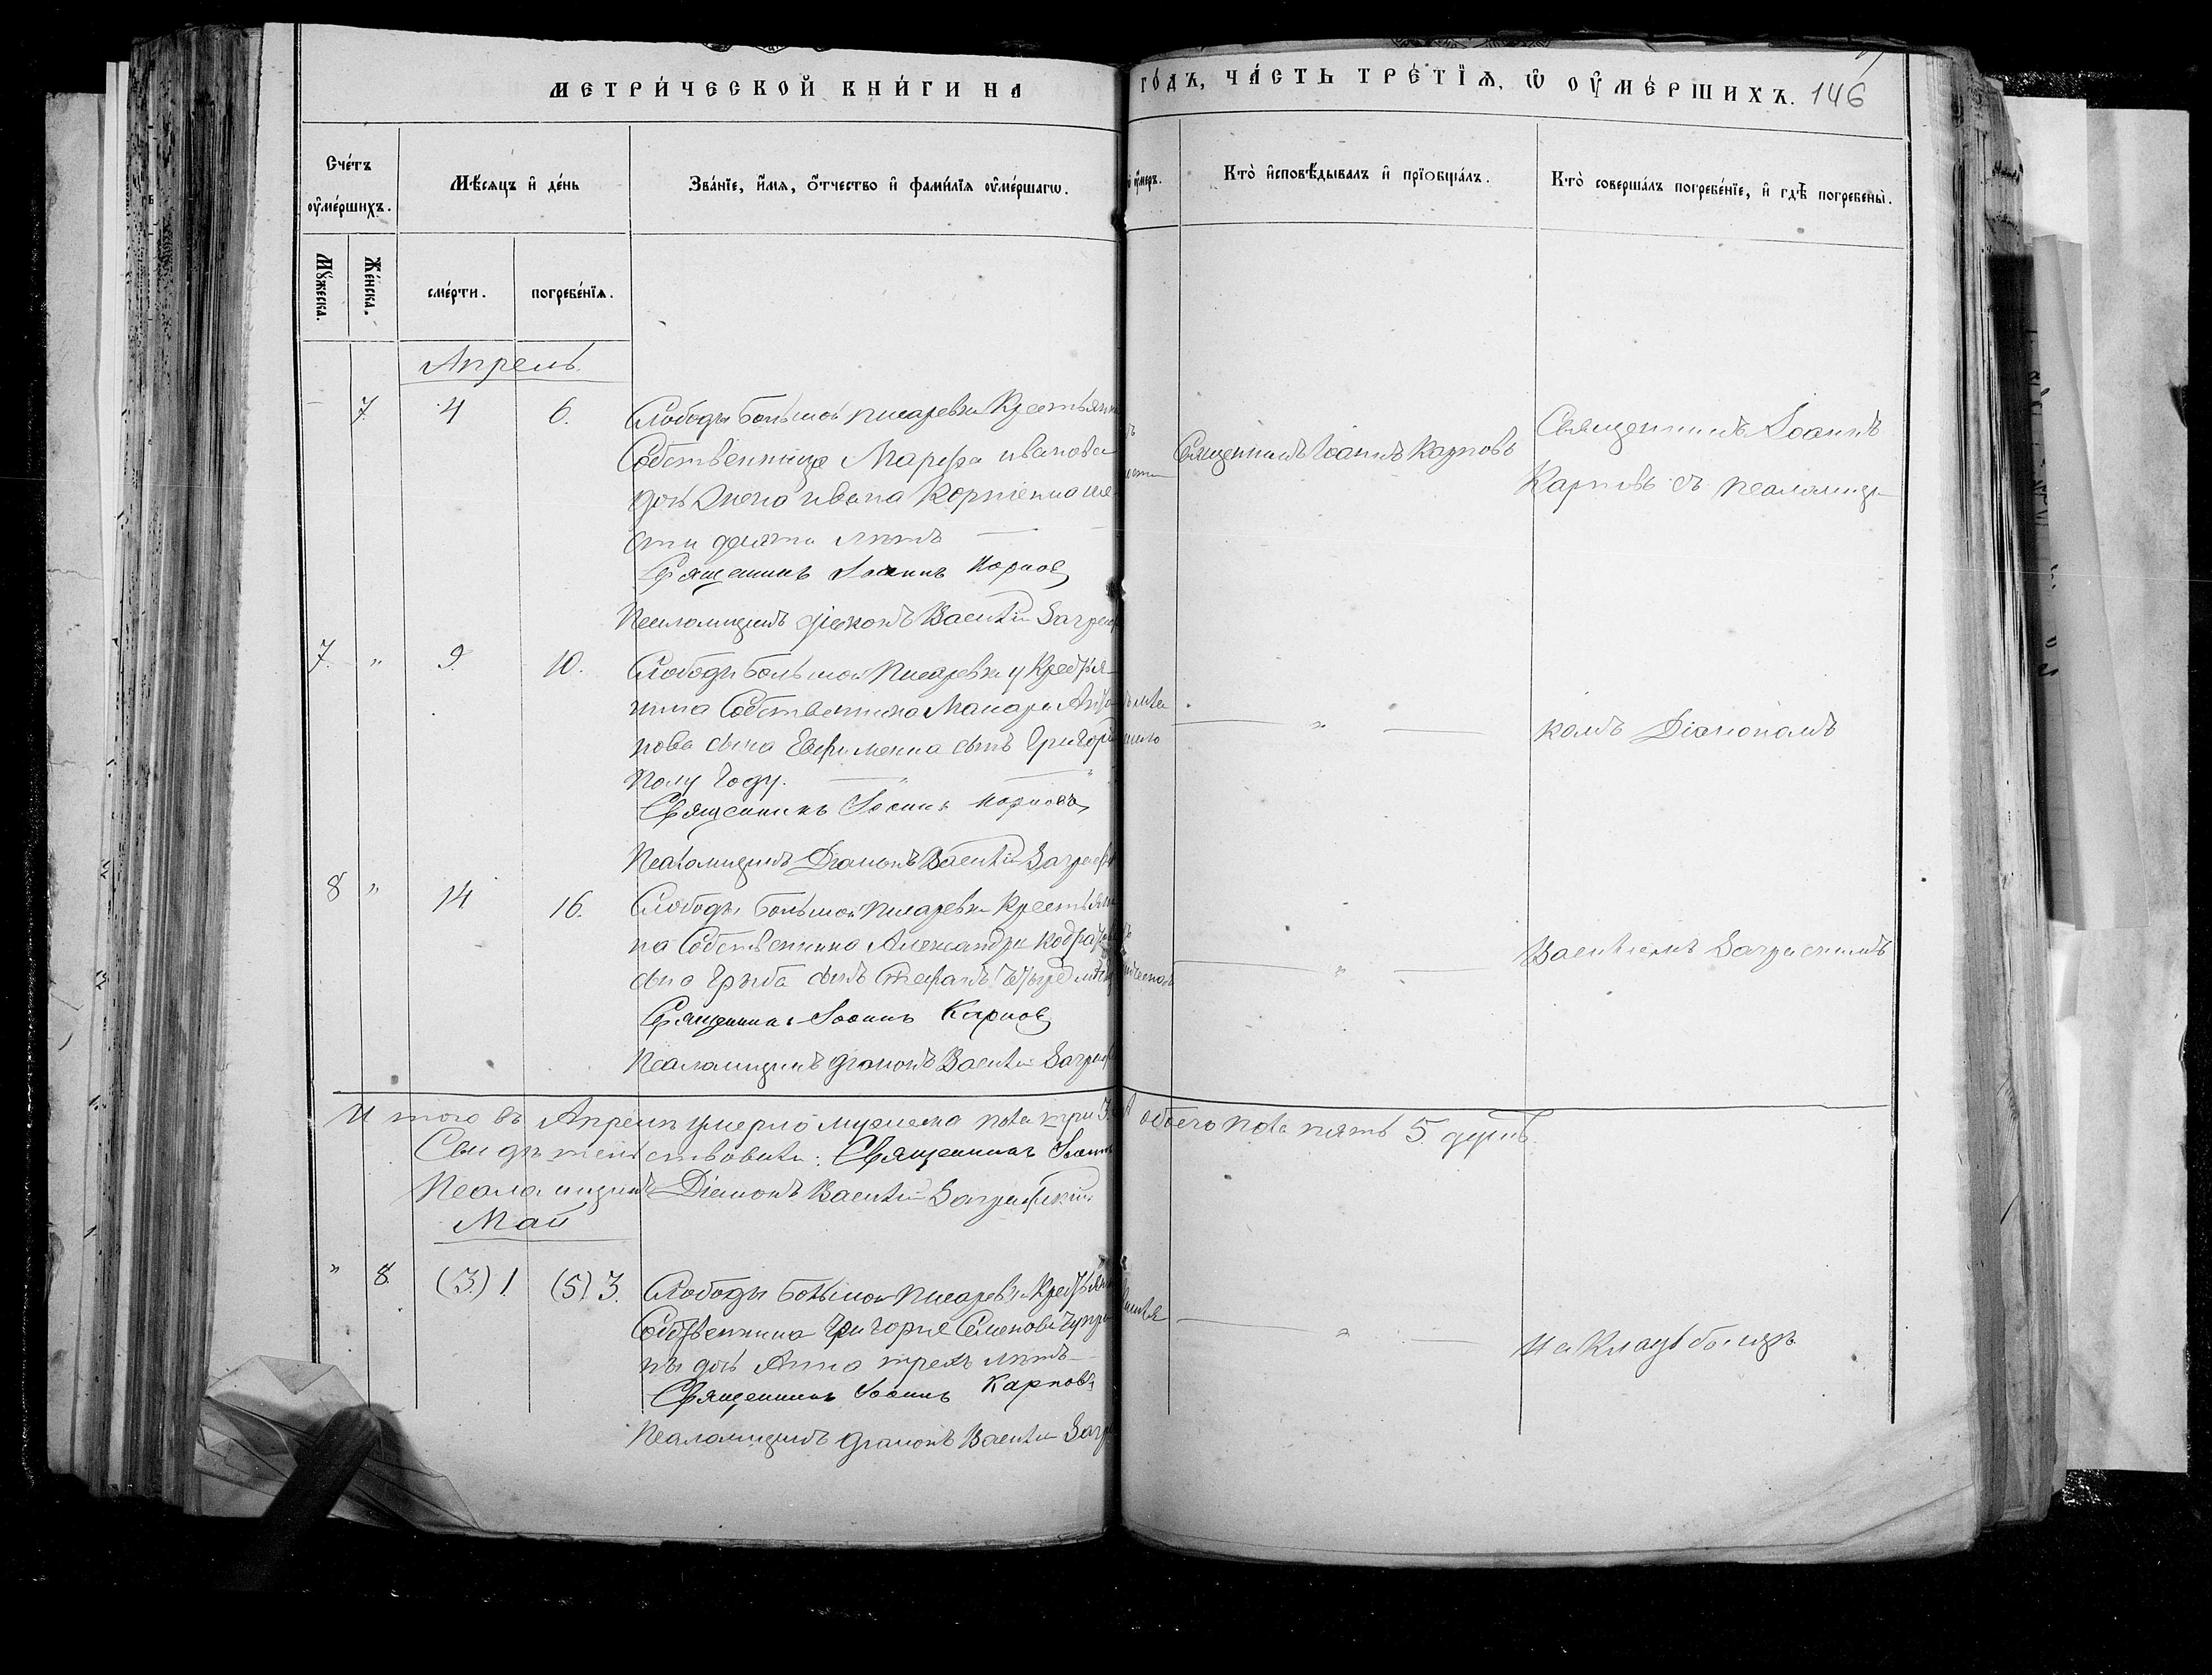 МЕТРИ́ЧЕСКОЙ КНИ́ГИ НА
ГО́ДЪ, ЧА́СТЬ ТРЕ́ТІѦ, Ѡ ОУ҆МЕ́РШИХЪ. 146
Сче́тъ оу҆ме́ршихъ.
Мѣ́сѧцъ и҆ де́нь
Зва́нїе, и҆́мѧ, ѻ҆́тчество и҆ фамѝлїѧ оу҆ме́ршагѡ.
Кто̀ и҆сповѣ́дывалъ и҆ прїобща́лъ.
Кто̀ соверша́лъ погребе́нїе, и҆ гдѣ̀ погребены̀.
Мꙋ́жеска.
Же́нска.
сме́рти.
погребе́нїѧ.
Апрель
7. 4 6. Слободы Большой писаревки Крестьянк
Собственнице Марфа иванова
дочь ивана Корніенка ше
сти десяти лѣтъ
Священникъ Іоаннъ Карпов
Псаломщикъ Діаконъ Василій
Священникъ Іоаннъ Карповъ
Священникъ Іоаннъ
Карповъ съ псаломщи
7. " 9. 10. Слободы Большой Писаревки у Крестья
нина Собственника Макара
нова сына Ефименка сынъ Григорі
полу году.
Священникъ Іоаннъ Карповъ
Псаломщикъ Діаконъ Василій
комъ Діакономъ
8 " 14 16. Слободы Большой писаревки Крестьяни
на Собственника Александра
сына Грыба сынъ Стефанъ
Священникъ Іоаннъ Карпов
Псаломщикъ Діаконъ Василій
Василіемъ
И того въ Апрелѣ умерло мужеска пола три 3. обоего пола пять 5. душъ.
Свидѣтельствовали: Священникъ Іоаннъ
Псаломщикъ Діаконъ Василій
Май
" 8. (3.) 1 (5). 3. Слободы Большой писаревки Крестьяни
Собственника Григорія Семенова
ны дочь Анна трехъ лѣтъ
Священникъ Іоаннъ Карповъ
Псаломщикъ Діаконъ Василій
На Кладбищѣ